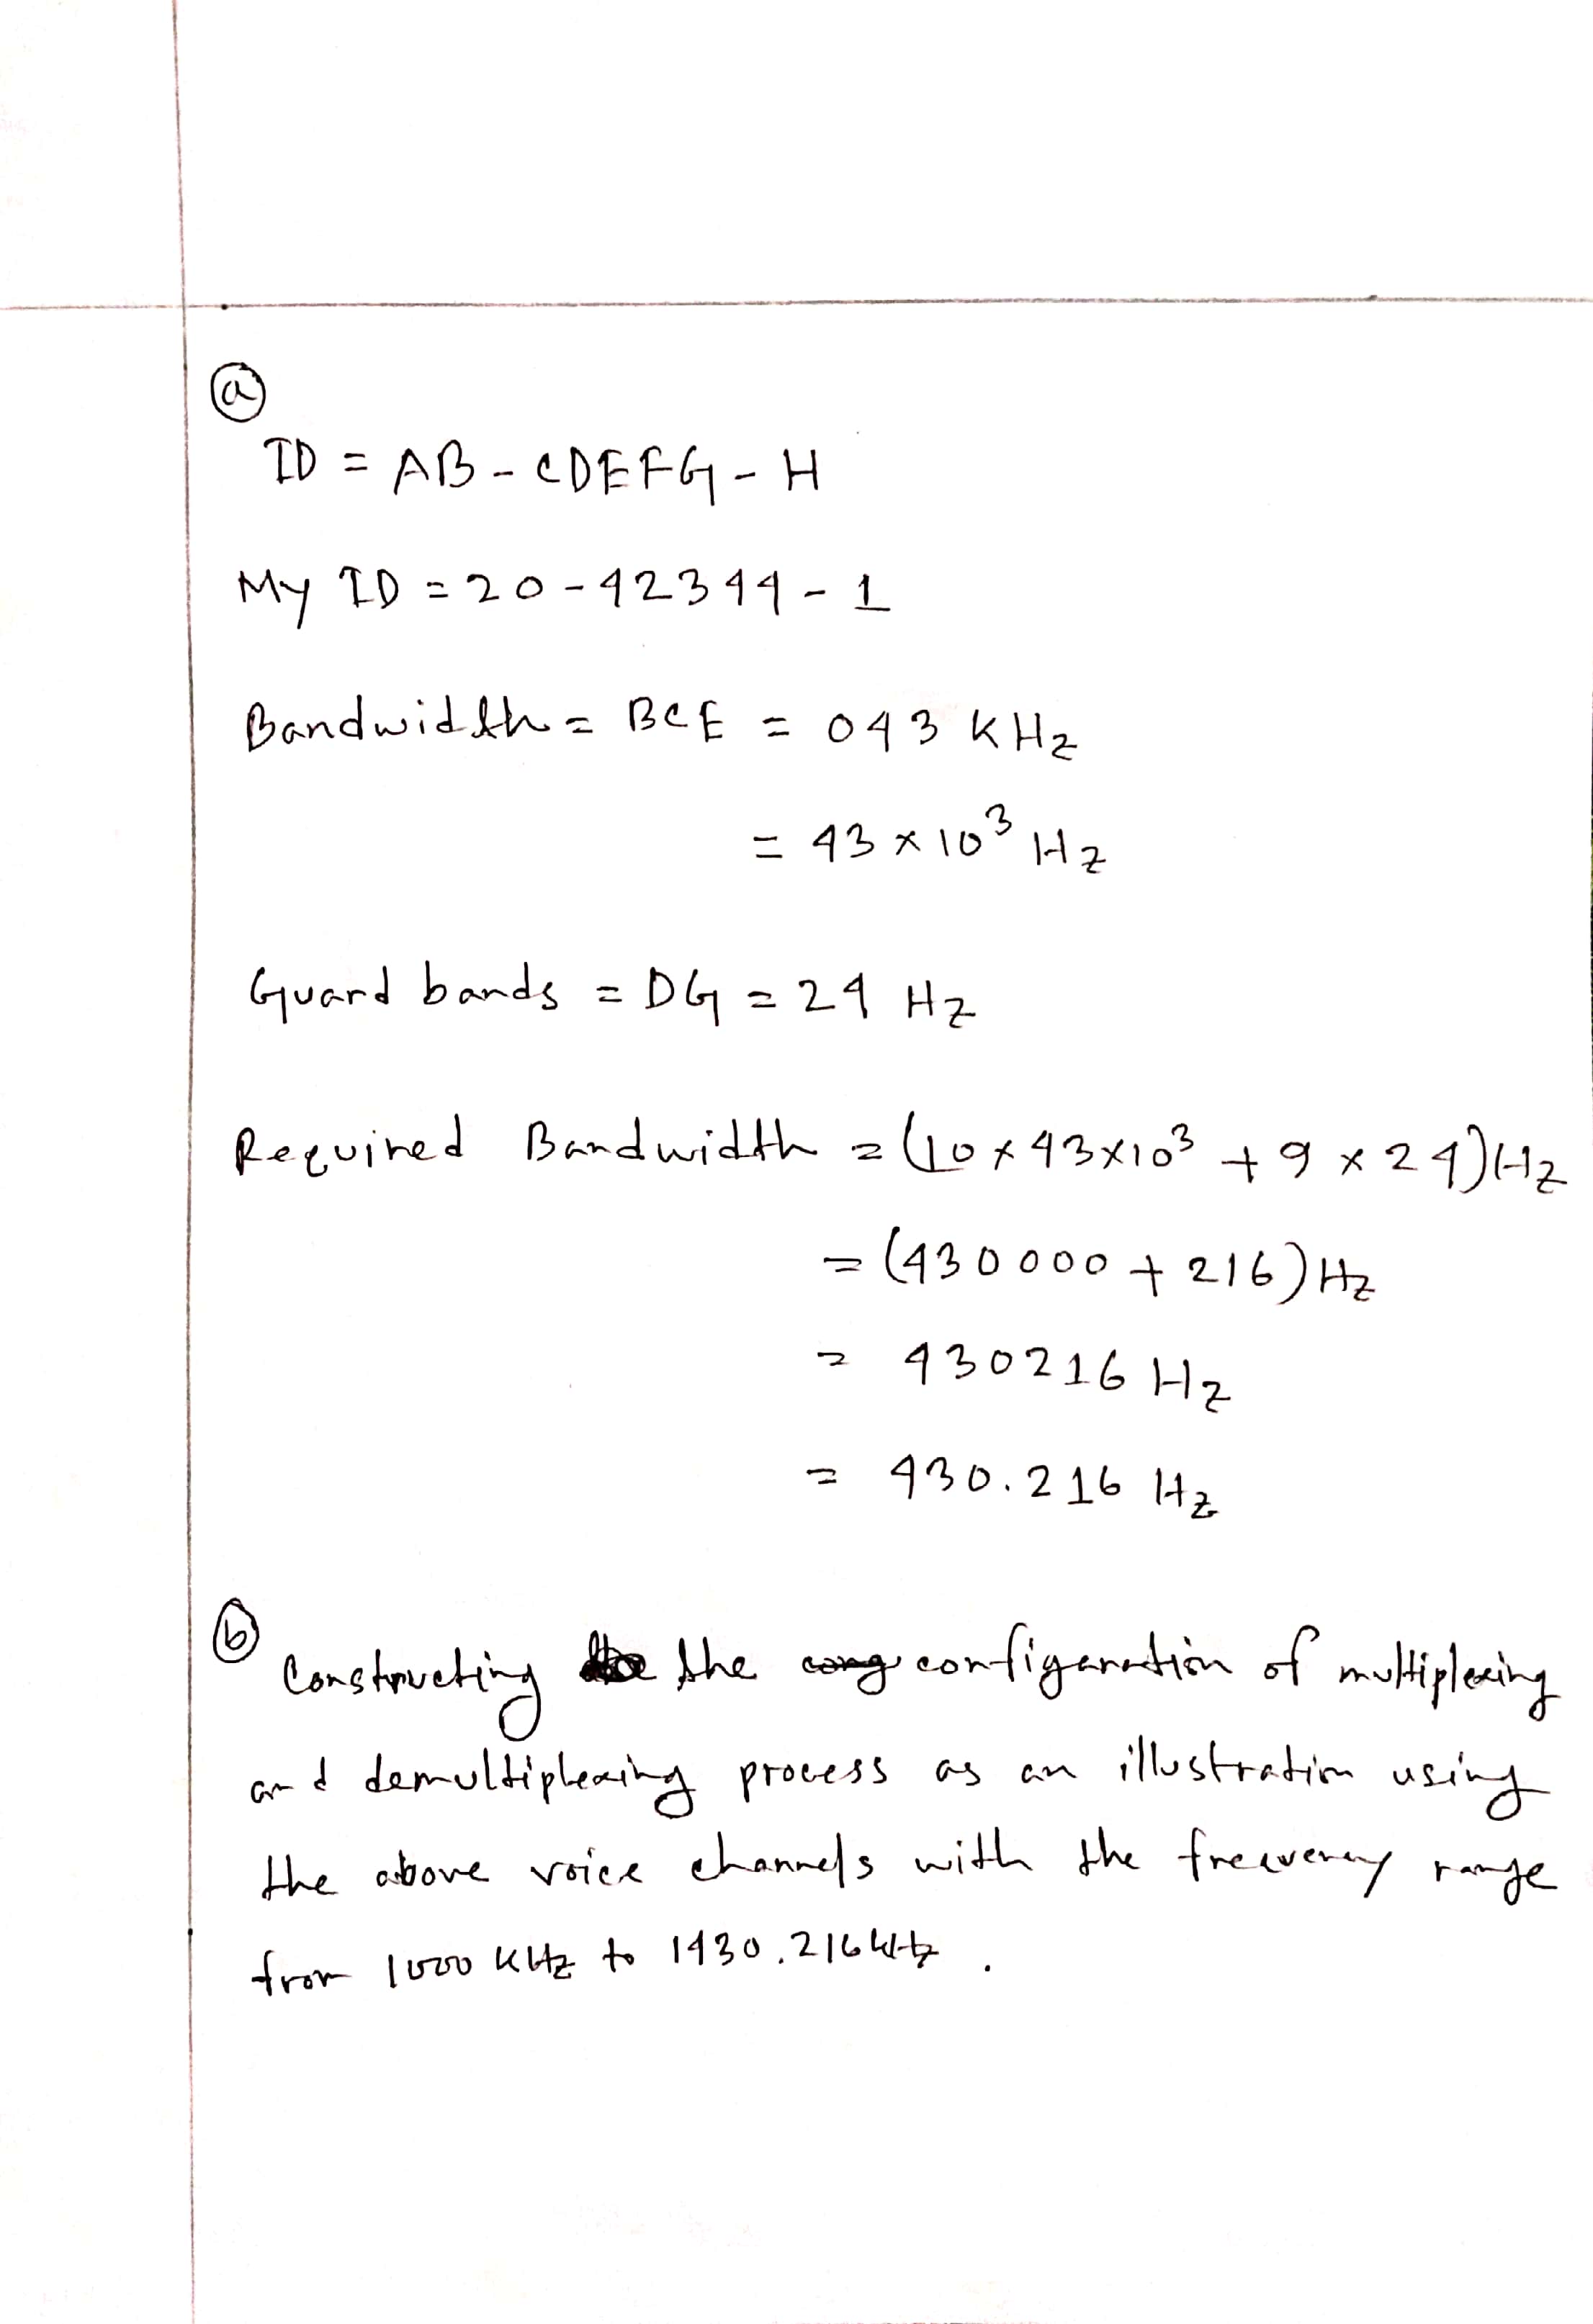 (a)
ID = AB - CDEFG - H
My ID = 20 - 42344 - 1
Bandwidth = BCE = 043 KHz
= 43 × 10³ Hz
Guard bands = DG = 24 Hz
Required Bandwidth = (10 × 43×10³ + 9 × 24)Hz
= (430000 + 216) Hz
= 430216 Hz
= 430.216 Hz
(b)
Constructing the configaration of multiplexing
and demultiplexing process as an illustration using
the above voice channels with the frequency range
from 1000 KHz to 1430.216 kHz .